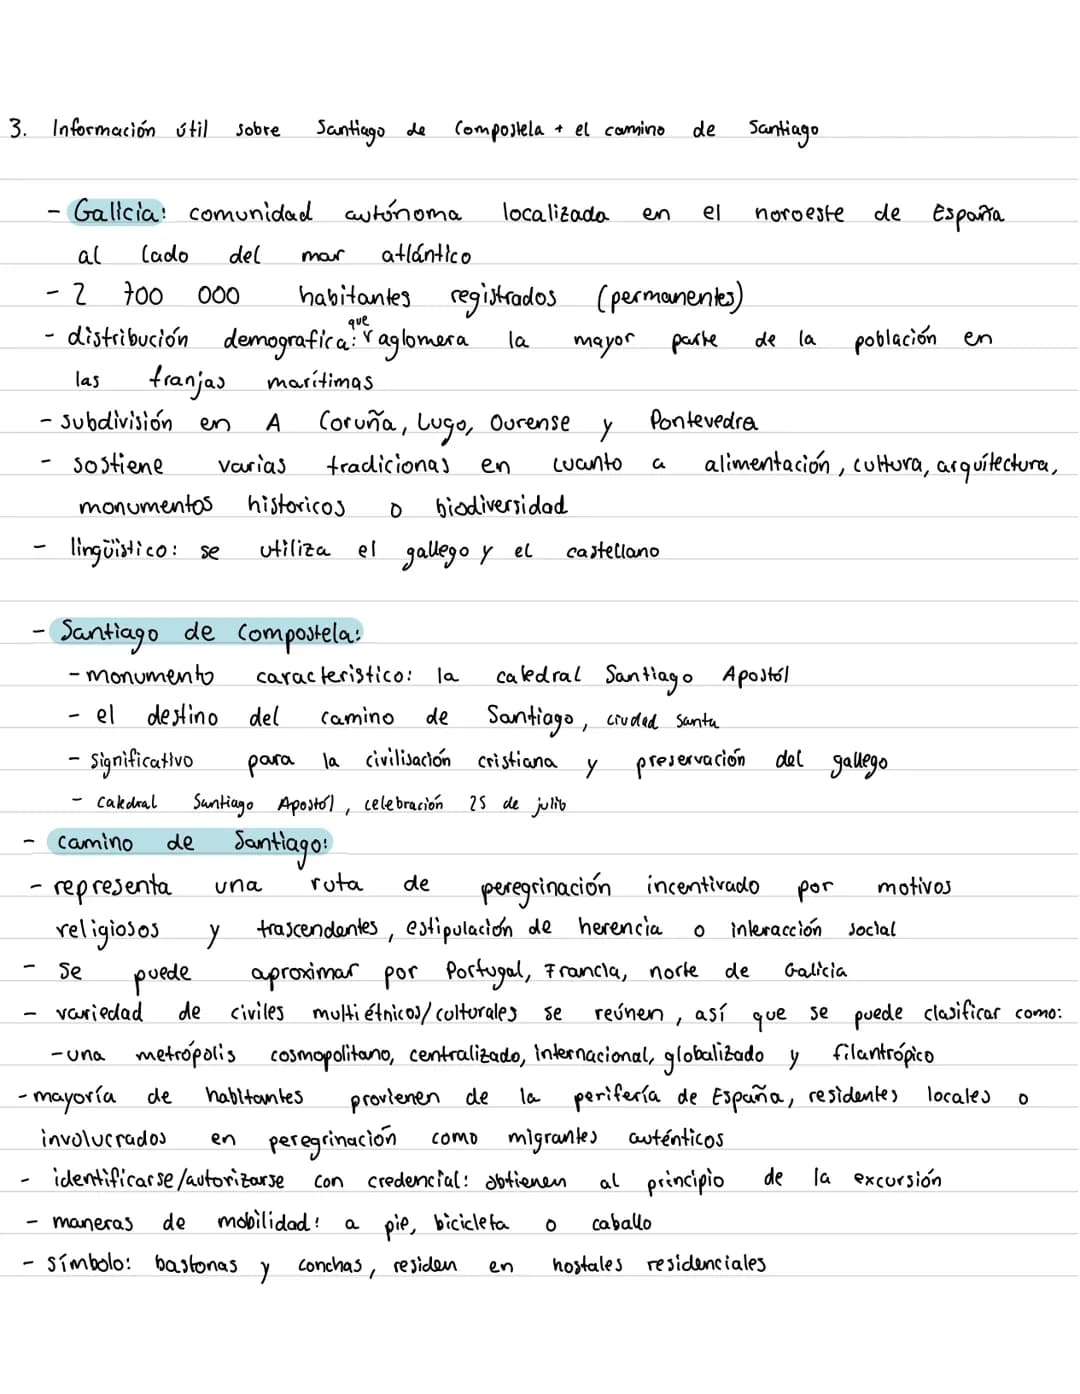 3. Información útil sobre Santiago de Compostela + el camino de Santiago
- Galicia: comunidad autónoma localizada en el noroeste de España
al lado del mar atlántico
- 2 700 000 habitantes registrados (permanentes)
- distribución demografica: que aglomera la mayor parte de la población en
las franjas marítimas
- subdivisión en A Coruña, Lugo, Ourense y Pontevedra
- sostiene varias tradicionas en cuanto a alimentación, cultura, arquitectura,
monumentos historicos o biodiversidad
- lingüistico: se utiliza el gallego y el castellano
- Santiago de Compostela:
- monumento caracteristico: la catedral Santiago Apostól
- el destino del camino de Santiago, ciudad santa
- significativo para la civilisación cristiana y preservación del gallego
- catedral Santiago Apostól, celebración 25 de julio
- camino de Santiago:
- representa una ruta de peregrinación incentivado por motivos
religiosos y trascendentes, estipulación de herencia o interacción social
- Se puede aproximar por Portugal, Francia, norte de Galicia
- variedad de civiles multiétnicos/culturales se reúnen, así que se puede clasificar como:
- una metrópolis cosmopolitano, centralizado, internacional, globalizado y filantrópico
- mayoría de habitantes provienen de la periferia de España, residentes locales o
involucrados en peregrinación como migrantes auténticos
- identificarse/autorizarse con credencial: obtienen al principio de la excursión
- maneras de mobilidad: a pie, bicicleta o caballo
- símbolo: bastonas y conchas, residen en hostales residenciales